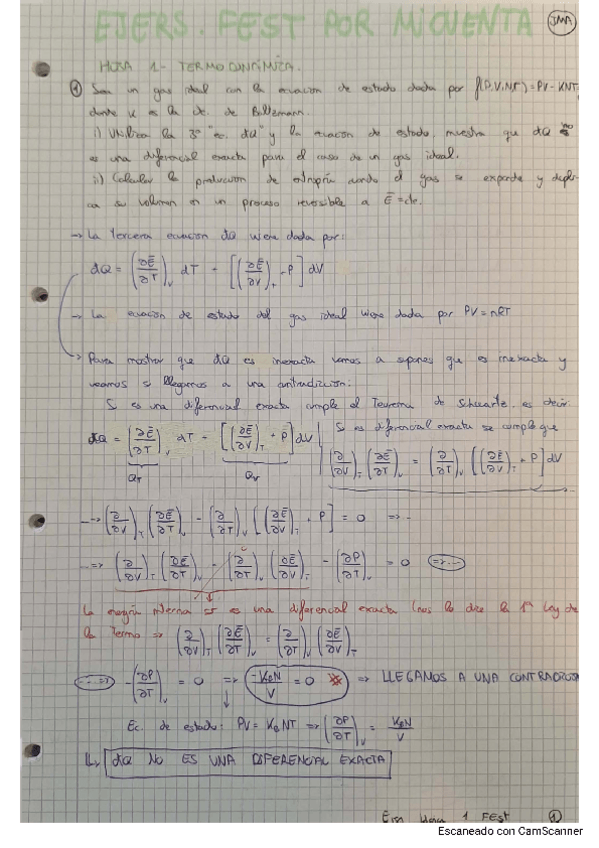 EJERS. FEST POR MI CUENTA
JMA
HOJA 1 - TERMODINÁMICA.
① Sea un gas ideal con la ecuación de estado dada por f(P,V,N,T) = PV - KNT,
donde K es la cte. de Boltzmann.
i) Utiliza la 3ª "ec. dQ" y la ecuación de estado, muestra que dQ no
es una diferencial exacta para el caso de un gas ideal.
ii) Calcular la producción de entropía cuando el gas se expande y dupli-
ca su volumen en un proceso reversible a Ē = cte.
→ La tercera ecuación dQ viene dada por:
đQ = (∂Ē/∂T)_V dT + [(∂Ē/∂V)_T + P] dV
→ La ecuación de estado del gas ideal viene dada por PV = nRT
→ Para mostrar que đQ es inexacta vamos a suponer que es inexacta y
veamos si llegamos a una contradicción:
Si es una diferencial exacta cumple el Teorema de Schwartz, es decir:
đQ = (∂Ē/∂T)_V dT + [(∂Ē/∂V)_T + P] dV
Si es diferencial exacta se cumple que
Q_T
Q_V
(∂/∂V)_T (∂Ē/∂T)_V = (∂/∂T)_V [(∂Ē/∂V)_T + P] dV
--→ (∂/∂V)_T (∂Ē/∂T)_V - (∂/∂T)_V [(∂Ē/∂V)_T + P] = 0 ⇒ --
--⇒ (∂/∂V)_T (∂Ē/∂T)_V - (∂/∂T)_V (∂Ē/∂V)_T - (∂P/∂T)_V = 0 ⇒ ...
0
La energía interna sí es una diferencial exacta (nos lo dice la 1ª Ley de
la Termo ⇒ (∂/∂V)_T (∂Ē/∂T)_V = (∂/∂T)_V (∂Ē/∂V)_T
... ⇒ -(∂P/∂T)_V = 0 ⇒ -K_B N/V = 0 ⇒ LLEGAMOS A UNA CONTRADICCIÓN
Ec. de estado: PV = K_B NT ⇒ (∂P/∂T)_V = K_B N/V
↳ đQ NO ES UNA DIFERENCIAL EXACTA
1 FEST ①
Escaneado con CamScanner